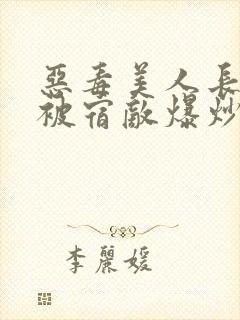 惡毒美人長
被宿敵爆炒
李麗媛